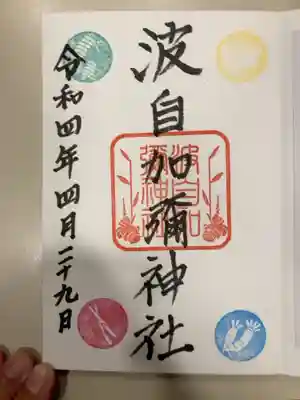 波自加彌神社
波自加
彌神社
令和四年四月二十九日